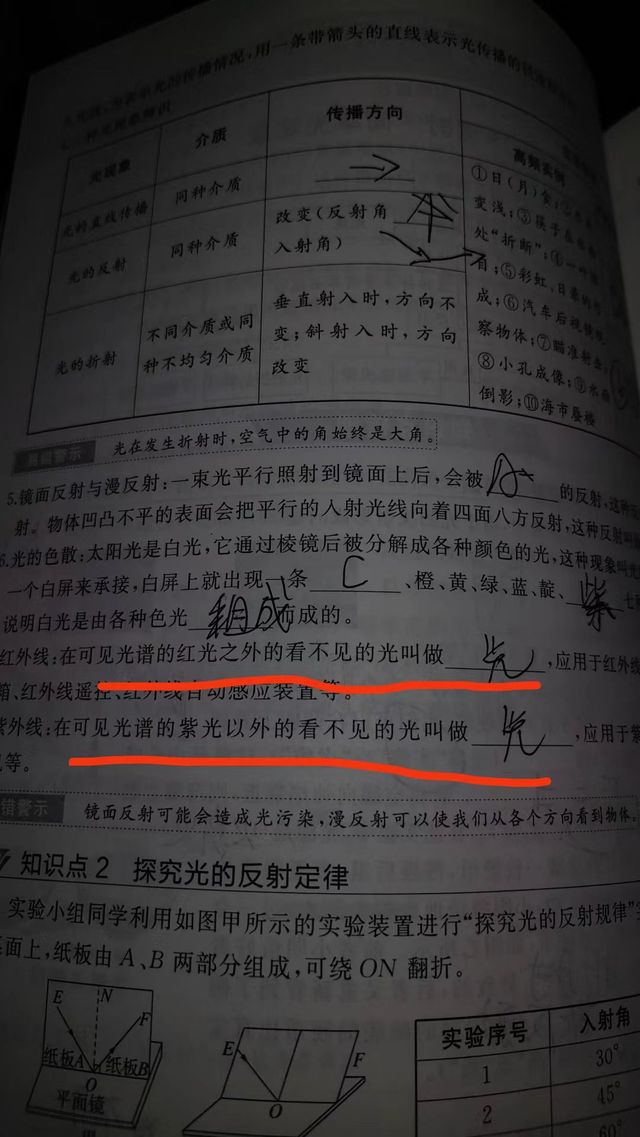 表示光的传播情况,用一条带箭头的直线表示光传播的
光现象 介质 传播方向 高频实例
光的直线传播 同种介质 →
光的反射 同种介质 改变(反射角
入射角)
光的折射 不同介质或同
种不均匀介质 垂直射入时,方向不
变;斜射入时,方向
改变
①日(月)食;
变浅;③筷子在
处“折断”;④一叶
目;⑤彩虹、日晕的
成;⑥汽车后视镜
察物体;⑦瞄准射击;
⑧小孔成像;⑨水面
倒影;⑩海市蜃楼
警示 光在发生折射时,空气中的角始终是大角。
5.镜面反射与漫反射:一束光平行照射到镜面上后,会被 的反射,这种
射。物体凹凸不平的表面会把平行的入射光线向着四面八方反射,这种反射叫
6.光的色散:太阳光是白光,它通过棱镜后被分解成各种颜色的光,这种现象叫
一个白屏来承接,白屏上就出现一条 C 、橙、黄、绿、蓝、靛、紫 七
说明白光是由各种色光 组成 而成的。
红外线:在可见光谱的红光之外的看不见的光叫做 光 ,应用于红外线
箱、红外线遥控、红外线自动感应装置等。
紫外线:在可见光谱的紫光以外的看不见的光叫做 光 ,应用于紫
等。
警示 镜面反射可能会造成光污染,漫反射可以使我们从各个方向看到物体。
知识点2 探究光的反射定律
实验小组同学利用如图甲所示的实验装置进行“探究光的反射规律”
面上,纸板由A、B两部分组成,可绕ON翻折。
E N F
纸板A O 纸板B
平面镜
E F
O
实验序号 入射角
1 30°
2 45°
60°